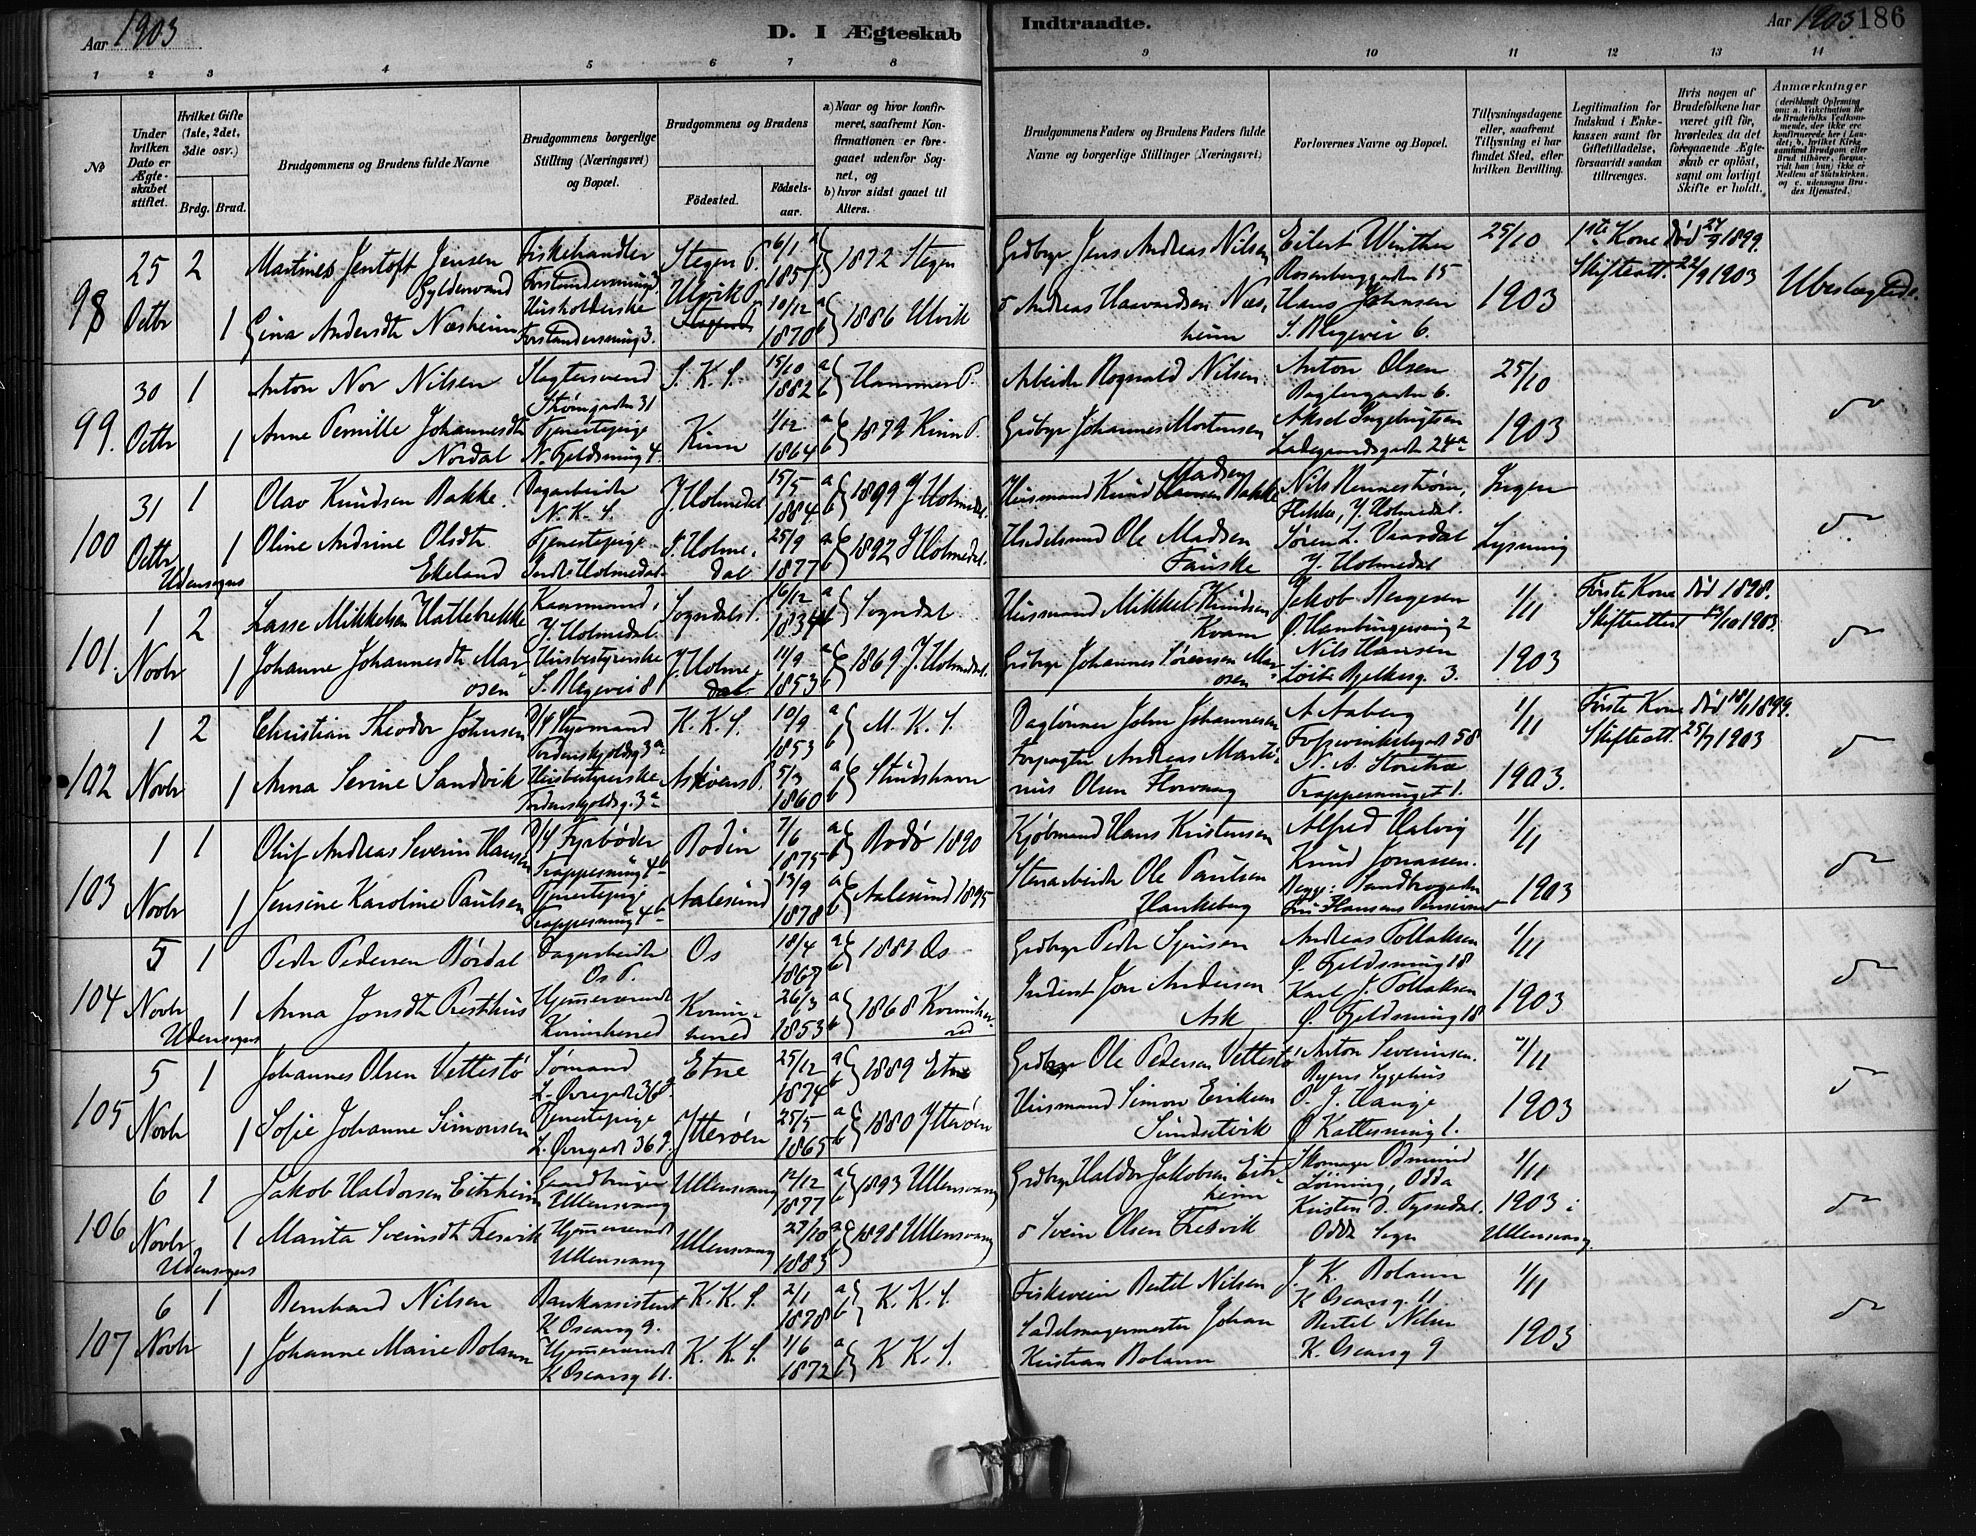 Aar 1903
D. I Ægteskab
Indtraadte.
Aar 1903. 186
1 2 3 4 5 6 7 8 9 10 11 12 13 14
№
Under hvilken Dato er Ægteskabet stiftet.
Hvilket Gifte (1ste, 2det, 3die osv.)
Brdg. Brud.
Brudgommens og Brudens fulde Navne
Brudgommens borgerlige Stilling (Næringsvei) og Bopæl.
Brudgommens og Brudens
Fødested. Fødselsaar.
a) Naar og hvor konfirmeret, saafremt Konfirmationen er foregaaet udenfor Sognet, og
b) hvor sidst gaaet til Alters.
Brudgommens Faders og Brudens Faders fulde Navne og borgerlige Stillinger (Næringsvei)
Forlovernes Navne og Bopæl.
Tillysningsdagene eller, saafremt Tillysning ei har fundet Sted, efter hvilken Bevilling.
Legitimation for Indskud i Enkekassen samt for Giftetilladelse, forsaavidt saadan tiltrænges.
Hvis nogen af Brudefolkene har været gift før, hvorledes da det foregaaende Ægteskab er opløst, samt om lovligt Skifte er holdt.
Anmærkninger
98 25 Octbr 2 Martines Jentoft Jensen Gyldenvand Fiskehandler Forstandersmug 3 Stegen P. 6/1 1857 a b 1872 Stegen
Grdbrgr Jens Andreas Nilsen Eilert Winther Rosenberggaden 15 25/10 1903 1ste Kone død 24/9 1899. Skifteatt. 22/9 1903 Ubeslægtede.
1 Gina Andersdtr Næsheim Husholderske Forstandersmug 3. Ulvik P. 10/12 1870 a b 1886 Ulvik
do Andreas Haavardsen Næsheim Hans Johnsen S. Blegevei 6.
99. 30 Octbr 1 Anton Nor Nilsen Slagtersvend Strømgaden 31 S. K. S. 15/10 1882 a b Hammer P.
Arbeider Rognald Nilsen Anton Olsen Baglergaden 6. 25/10 1903 do
1 Anne Pernille Johannesdtr Nordal Tjenestepige N. Fjeldsmug 4. Kinn 1/12 1864 a b 1879 Kinn P.
Grdbrgr Johannes Mortensen Aksel Ingebrigtsen Ladegaardsgaden 24a
100 31 Octbr Udensogns 1 Olav Knudsen Bakke Dagarbeider N. K. S. Y. Holmedal 15/5 1884 a b 1899 Y. Holmedal.
Husmand Knud Madsen Bakke Nils Rennestrøm, Flekke, Y. Holmedal. Ingen Lysning do
1 Oline Andrine Olsdtr Ekeland Tjenestepige Indr. Holmedal. I. Holmedal 25/9 1877 a b 1892 I. Holmedal.
Ole Madsen Fauske Søren L. Vaardal Y. Holmedal
101. 1 Novbr 2 Lasse Mikkelsen Hatlebrekke Kaarmand, Y. Holmedal Sogndals P. 16/12 1834 a b Sogndal
Husmand Mikkel Knudsen Kvam Jakob Bergesen Ø. Hamburgersmug 2 1/11 1903 Første Kone død 1898. Skifteattest 12/10 1903. do
1 Johanne Johannesdtr Marøsen Husbestyrerske S. Blegevei 8 Y. Holmedal 14/9 1853 a b 1869 Y. Holmedal.
Grdbrgr Johannes Sørensen Marøsen Nils Hansen 3.
102 1 Novbr 2 Christian Theodor Johnsen D/S Styrmand Tordenskjoldsg. 3a K. K. S. 10/9 1853 a b M. K. S.
Daglønner John Johannesen A. Aaberg Fosswinkelsgade 58 1/11 1903. Første Kone død 18/1 1899. Skifteatt. 25/7 1903 do
1 Anna Severine Sandvik Husbestyrerske Tordenskjoldsg. 3a Askøens P. 5/3 1860 a b Skudshavn
Forpagter Andreas Martinus Olsen Florvaag N. A. Storetræ Trappesmuget 1.
103 1 Novbr 1 Oluf Andreas Severin Hansen D/S Fyrbøder Trappesmug 4b Bodin 7/6 1875 a b Bodø 1890
Kjøbmand Hans Kristensen Alfred Halvig 1/11 1903 do
1 Jensine Karoline Paulsen Tjenestepig Trappesmug 4b Aalesund 13/9 1878 a b Aalesund 1895
Stenarbeider Ole Paulsen Haukeberg Knud Jonassen. Begge: Sandbrogaden Fru Hansens Pensionat
104 5 Novbr Udensogns 1 Peder Pedersen Bórdal Dagarbeider Os P. Os 18/4 1867 a b 1881 Os
Grdbrgr Peder Sjursen Andreas Tollaksen Ø. Fjeldsmug 18 1/11 1903 do
1 Anna Jonsdtr Presthus Hjemmeværende Kvinnherred Kvinnherred 26/3 1853 a b 1868 Kvinnherred
Inderst Jon Andersen Ask Karl J. Tollaksen Ø. Fjeldsmug 18
105 5 Novbr 1 Johannes Olsen Vettestø Sømand L. Øvregade 36 Etne 25/12 1874 a b 1889 Etne
Grdbrgr Ole Pedersen Vettestø Anton Severinsen. Byens Sygehus 1/11 1903 do
1 Sofie Johanne Simonsen Tjenestepige L. Øvregade 36 Ytterøen 25/5 1865 a b 1880 Ytterøen
Husmand Simon Eriksen Sundsetvik O. J. Hauge Ø Kattesmug 1.
106 6 Novbr Udensogns 1 Jakob Haldorsen Eitrheim Gaardbruger Ullensvang Ullensvang 12/12 1877 a b 1893 Ullensvang
Grdbrgr Haldor Jakobsen Eitrheim Skomager Odmund Løining, Odda 1/11 1903 i Ullensvang do
1 Marita Sveinsdtr Tresvik Hjemmeværende Ullensvang Ullensvang 27/10 1883 a b 1898 Ullensvang
do Svein Olsen Tresvik Kristen D. Tyssedal. Odda Sogn
107 6 Novbr 1 Bernhard Nilsen Bankassistent K Oscarsg 9. K. K. S. 2/1 1878 a b K. K. S.
Fiskeveier Bertel Nilsen J. K. Bolann K Oscarsg 11. 1/11 1903 do
1 Johanne Marie Bolann Hjemmeværende K Oscarsg 11. K. K. S. 1/6 1872 a b K. K. S.
Sadelmagermester Johan Kristian Bolann Bertel Nilsen K. Oscarsg 9